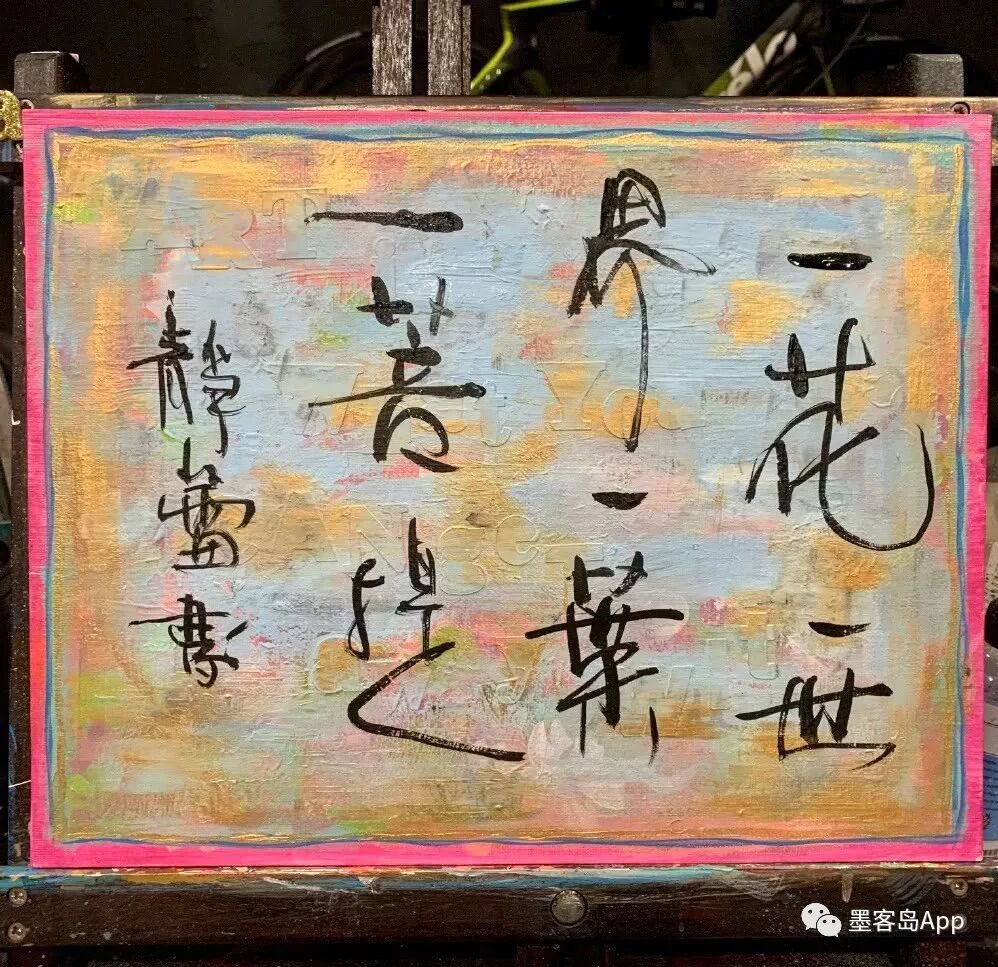 一花一世
界一葉
一菩提
靜蕾書
墨客岛App